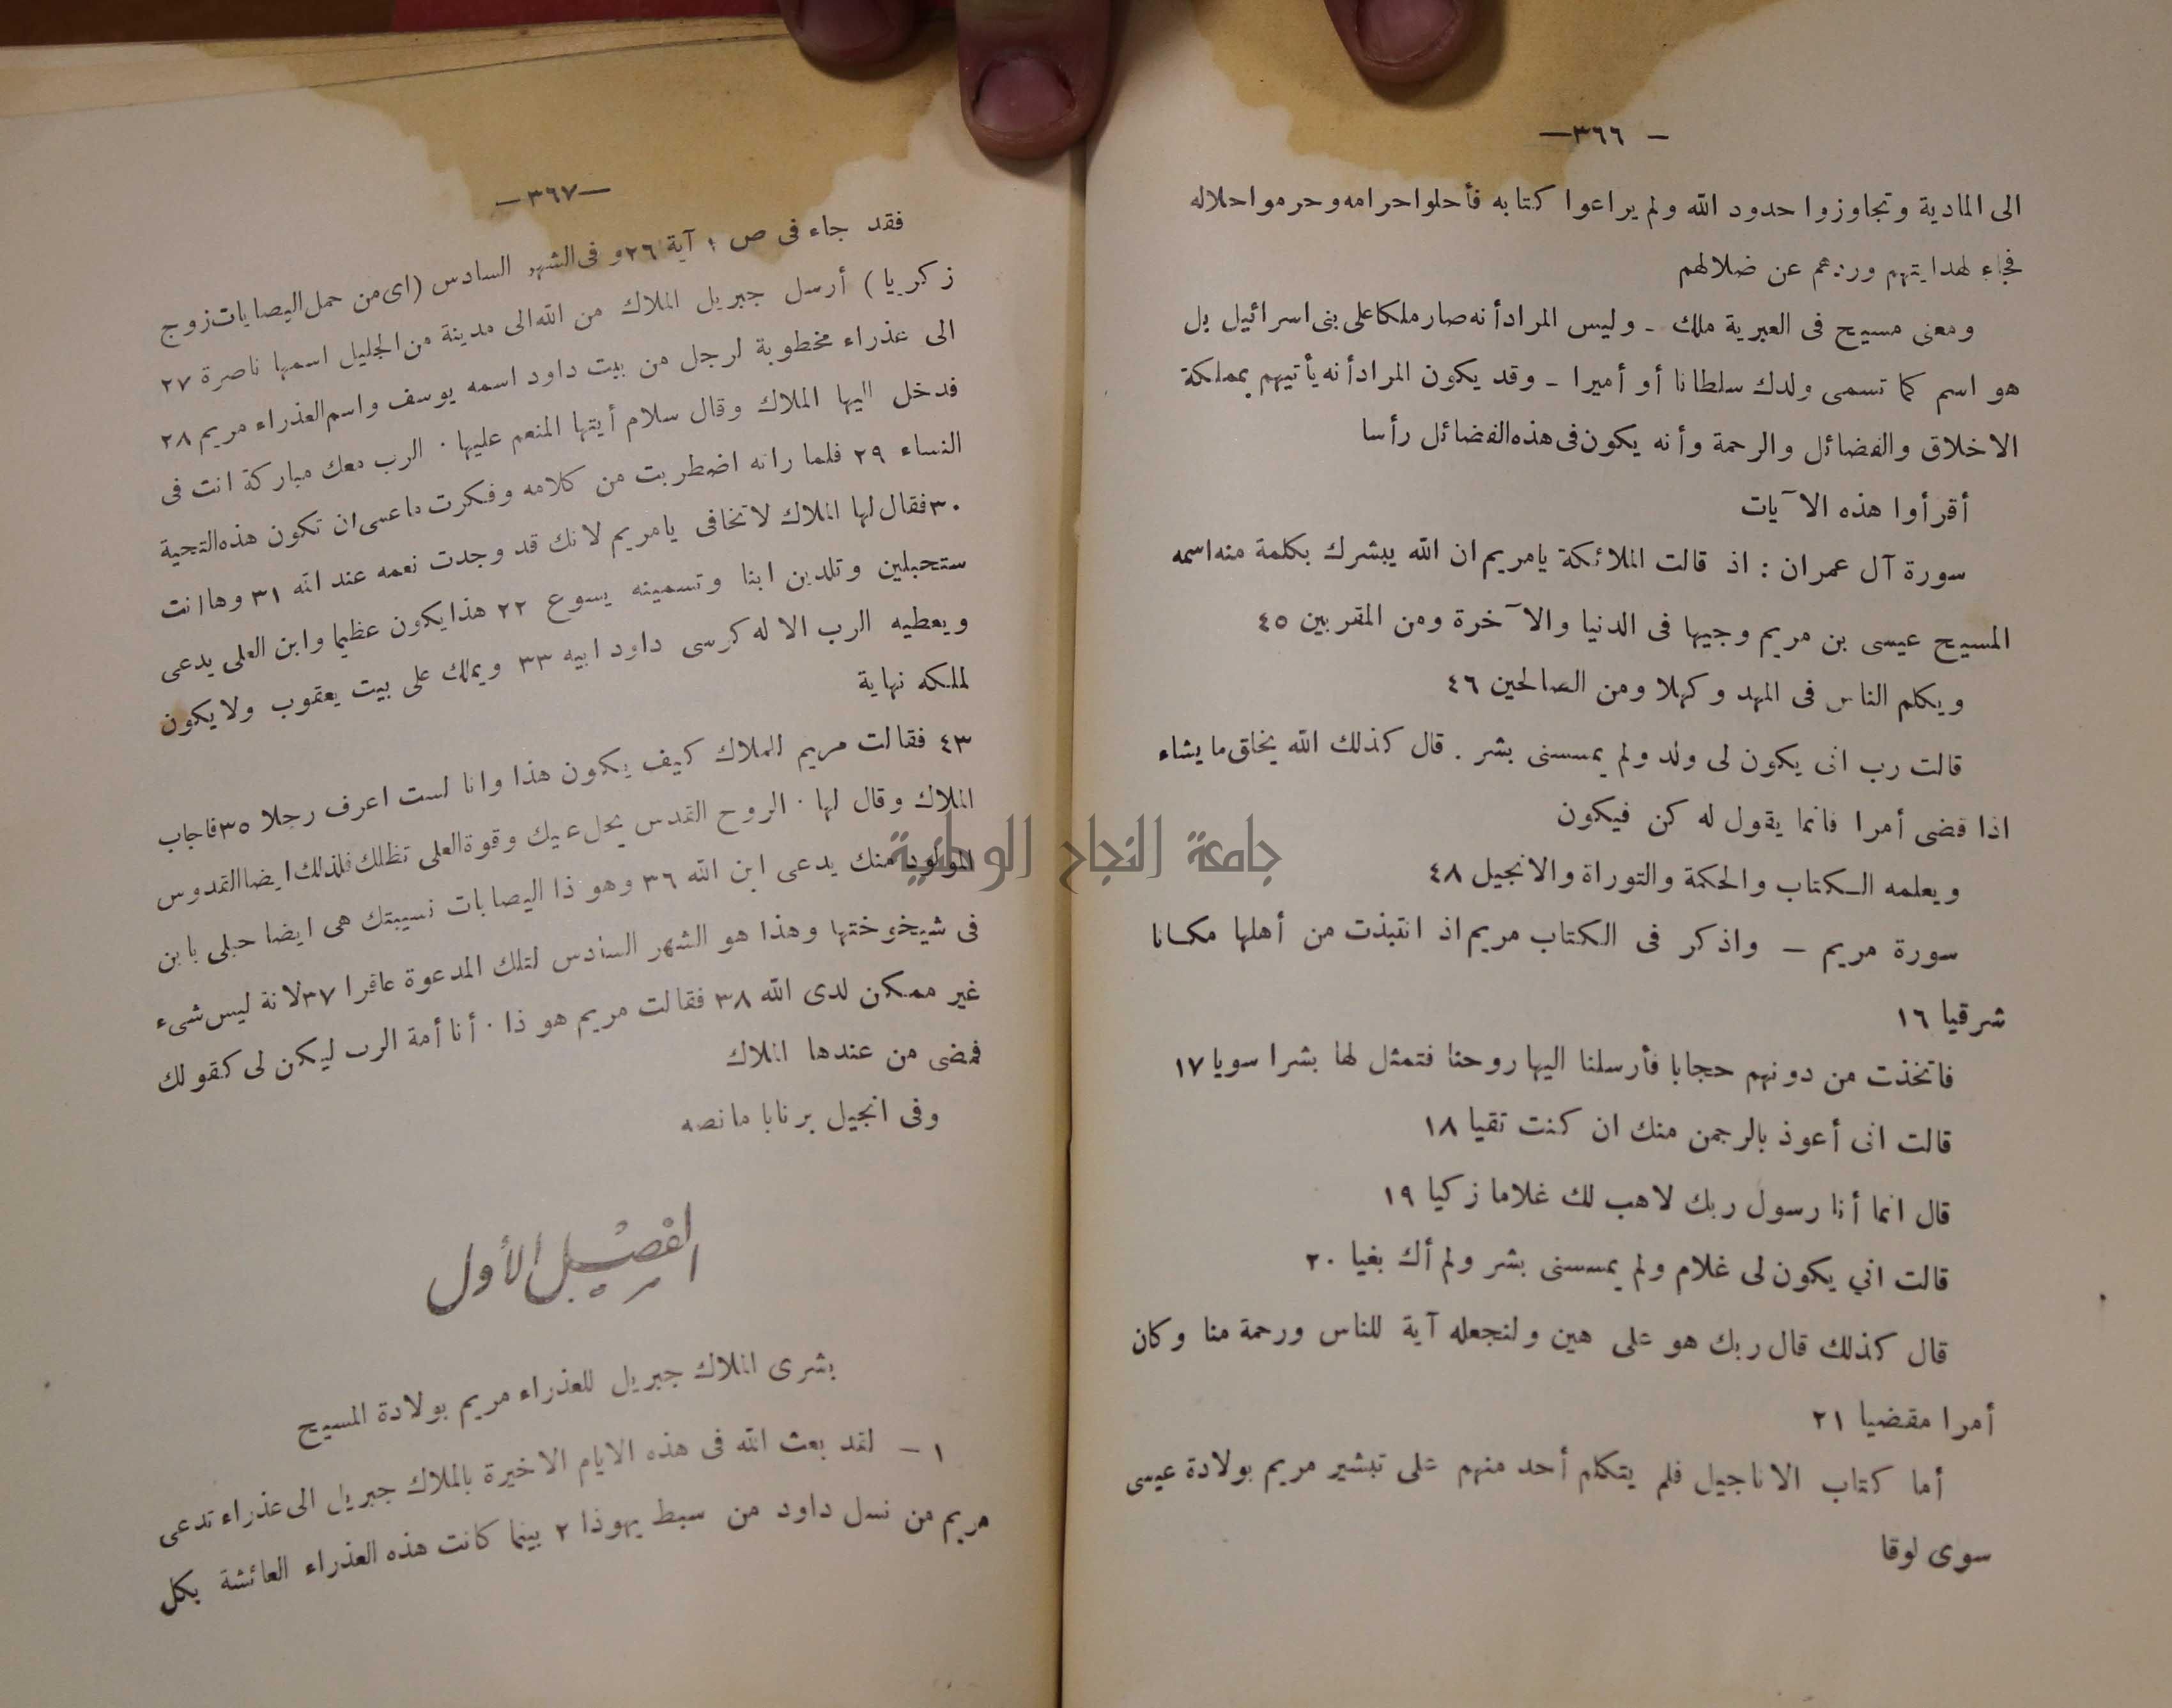 — ٣٦٦ —
الى المادية وتجاوزوا حدود الله ولم يراعوا كتابه فأحلوا حرامه وحرموا حلاله
فجاء لهدايتهم وردهم عن ضلالهم
ومعنى مسيح فى العبرية ملك - وليس المراد أنه صار ملكا على بنى اسرائيل بل
هو اسم كما تسمى ولدك سلطانا أو أميرا - وقد يكون المراد أنه يأتيهم بمملكة
الاخلاق والفضائل والرحمة وأنه يكون فى هذه الفضائل رأسا
أقرأوا هذه الآيات
سورة آل عمران : اذ قالت الملائكة يا مريم ان الله يبشرك بكلمة منه اسمه
المسيح عيسى بن مريم وجيها فى الدنيا والآخرة ومن المقربين ٤٥
ويكلم الناس فى المهد وكهلا ومن الصالحين ٤٦
قالت رب انى يكون لى ولد ولم يمسسنى بشر . قال كذلك الله يخلق ما يشاء
اذا قضى أمرا فانما يقول له كن فيكون
ويعلمه الكتاب والحكمة والتوراة والانجيل ٤٨
سورة مريم — واذكر فى الكتاب مريم اذ انتبذت من أهلها مكانا
شرقيا ١٦
فاتخذت من دونهم حجابا فأرسلنا اليها روحنا فتمثل لها بشرا سويا ١٧
قالت انى أعوذ بالرحمن منك ان كنت تقيا ١٨
قال انما أنا رسول ربك لاهب لك غلاما زكيا ١٩
قالت اني يكون لى غلام ولم يمسسنى بشر ولم أك بغيا ٢٠
قال كذلك قال ربك هو على هين ولنجعله آية للناس ورحمة منا وكان
أمرا مقضيا ٢١
أما كتاب الاناجيل فلم يتكلم أحد منهم على تبشير مريم بولادة عيسى
سوى لوقا
—٣٦٧—
فقد جاء فى ص ١ آية ٢٦ وفى الشهر السادس (اى من حمل اليصابات زوج
زكريا) أرسل جبريل الملاك من الله الى مدينة من الجليل اسمها ناصرة ٢٧
الى عذراء مخطوبة لرجل من بيت داود اسمه يوسف واسم العذراء مريم ٢٨
فدخل اليها الملاك وقال سلام أيتها المنعم عليها . الرب معك مباركة انت فى
النساء ٢٩ فلما راته اضطربت من كلامه وفكرت ما عسى ان تكون هذه التحية
٣٠ فقال لها الملاك لا تخافى يا مريم لانك قد وجدت نعمه عند الله ٣١ وها انت
ستحبلين وتلدين ابنا وتسمينه يسوع ٢٢ هذا يكون عظيما وابن العلى يدعى
ويعطيه الرب الاله كرسى داود ابيه ٣٣ ويملك على بيت يعقوب ولا يكون
لملكه نهاية
٤٣ فقالت مريم للملاك كيف يكون هذا وانا لست اعرف رجلا ٣٥ فاجاب
الملاك وقال لها . الروح القدس يحل عيك وقوة العلى تظللك فلذلك ايضا القدوس
المولود منك يدعى ابن الله ٣٦ وهو ذا اليصابات نسيبتك هى ايضا حبلى بابن
فى شيخوختها وهذا هو الشهر السادس لتلك المدعوة عاقرا ٣٧ لانة ليس شىء
غير ممكن لدى الله ٣٨ فقالت مريم هو ذا . أنا أمة الرب ليكن لى كقولك
فمضى من عندها الملاك
وفى انجيل برنابا ما نصه
الفصل الأول
بشرى الملاك جبريل للعذراء مريم بولادة المسيح
١ - لقد بعث الله فى هذه الايام الاخيرة بالملاك جبريل الى عذراء تدعى
مريم من نسل داود من سبط يهوذا ٢ بينما كانت هذه العذراء العائشة بكل
جامعة النجاح الوطنية